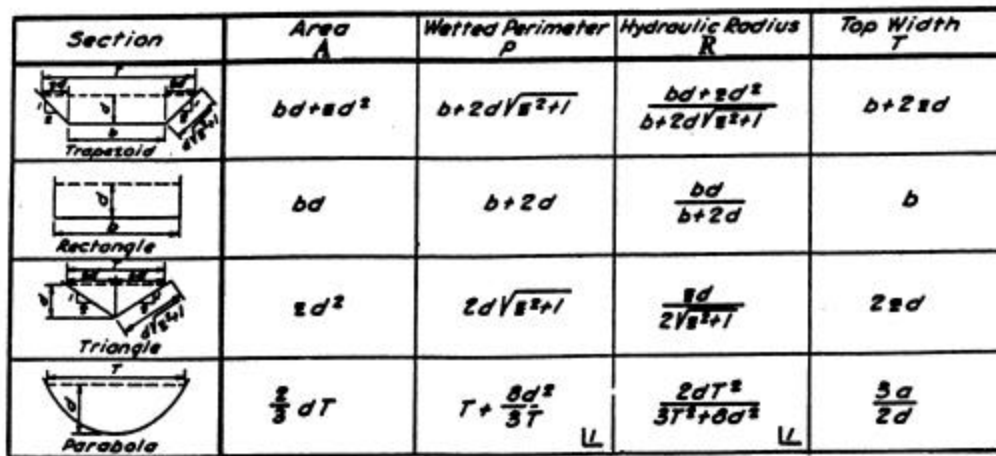 Section Area A Wetted Perimeter P Hydraulic Radius R Top Width T
T
zd zd
1 d 1
z z
b d√z²+1
Trapezoid
bd+zd² b+2d√z²+1 bd+zd² / b+2d√z²+1 b+2zd
d
b
Rectangle
bd b+2d bd / b+2d b
T
zd zd
d 1 1
z z
d√z²+1
Triangle
zd² 2d√z²+1 zd / 2√z²+1 2zd
T
d
Parabola
2/3 dT T + 8d²/3T 2dT² / 3T²+8d² 3a / 2d